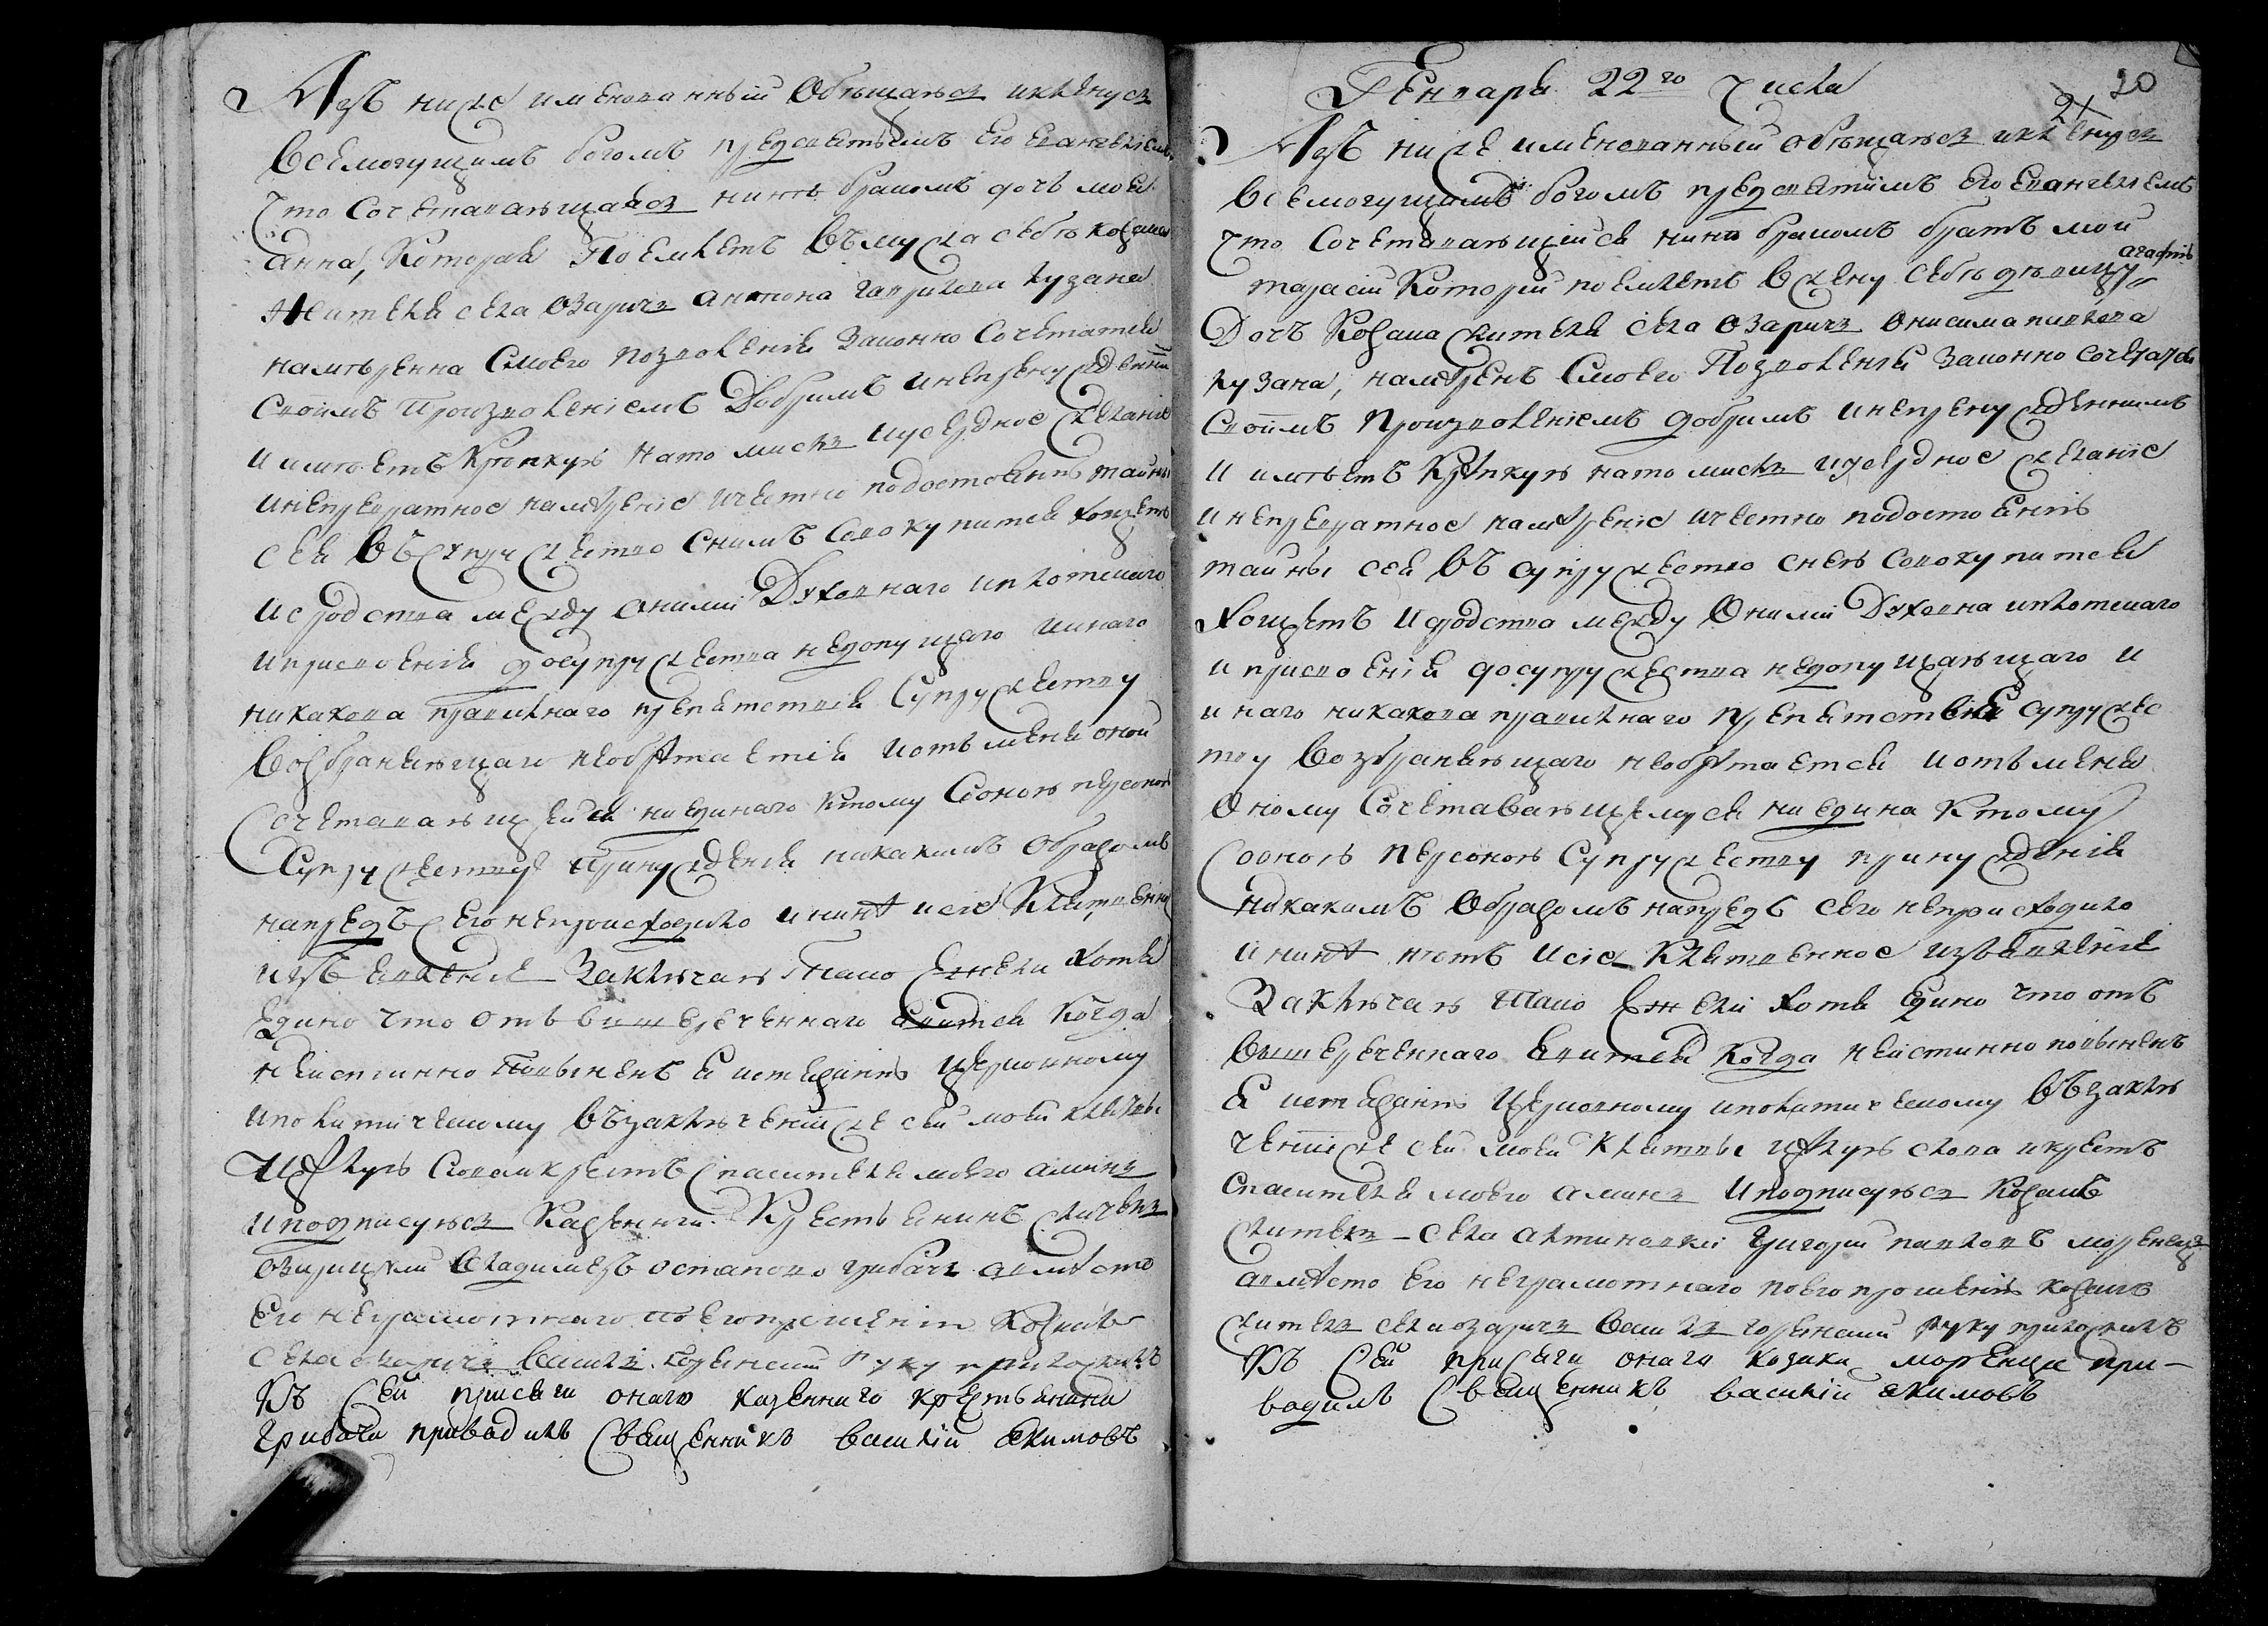 Азъ ниже именованный Обѣщаюся иклѧнуся
Всемогущимъ богомъ предсвѧтымъ его евангелиемъ
Что Сочетавающаяся нинѣ бракомъ дочь моя
Анна, Которая Поемлетъ Въ мужа себѣ козака
Жителя села Озаричъ Антона Гаврилова кузана
намѣренна Смоего позволенія Законно Сочетатся
Своімъ Произволеніемъ Добримъ инепринужденнимъ
и имѣетъ Крѣпкую на то мисль иусердное желаніе
инепревратное намѣреніе ичестно подостоянію тайны
сея Въ супружество снимъ Совокупится хощетъ
исродства между оними Духовнаго иплотскаго
иприсвоенія до супружества недопущаго иинаго
никакова правилнаго препятствія Супружеству
Возбраняющаго необрѣтается иотъ мене оной
Сочетавающейся ниединаго Ктому Соною персоною
Супружеству Принужденія никакимъ образомъ
напредъ Сего непроисходило ининѣ исіе Клятвенное
изъявленіе Заключаю Тако Ежели хотя
едино что отъ вишереченнаго явится Когда
неистинно Повиненъ я истязанію церковному
иполитическому въ заключеніи же сей моей клятвы
Цѣлую Слова икрестъ Спасителя моего аминь
иподписуюся Казенній Крестьянинъ житель
озарицкій Владимеръ остаповъ грибачъ авмѣсто
Его неграмотнаго по егопрошенію Козакъ
села озаричъ Василь горянскій Руку приложилъ
Къ Сей присяги онаго казеннаго крестьянина
Грибача приводилъ Священникъ василій Якимовъ
Генваря 22го Числа
20
21
Азъ ниже именованный обѣщаюся иклѧнуся
Всемогущимъ богомъ предсвѧтимъ его евангелиемъ
что Сочетавающійся нинѣ бракомъ братъ мой
тарасій Который поемлетъ Вжену себѣ дѣвицу агафію
Дочъ Козака жителя села Озаричъ Онисима павлова
кузана, намѣренъ Смоего Позволенія Законно сочетатся
Своімъ Произволеніемъ добримъ инепринужденнимъ
и имѣетъ Крѣпкую на то мисль иусердное желаніе
инепревратное намѣреніе ичестно подостоянію
тайны сея въ супружество снею совокупится
хощетъ исродства между Оними Духовна иплотскаго
иприсвоенія до супружества недопущающаго и
инаго никакова правилнаго препятствия супружес
тву возбраняющаго необрѣтается иотъ мене
Оному Сочетавающемуся ни едина Ктому
Соною персоною Супружеству принужденія
никакимъ Образомъ напредъ сего непроисходило
ининѣ нѣтъ исіе Клятвенное изъявленіе
Заключаю Тако Ежели хотя Едино что отъ
вышереченнаго явится когда неистинно повиненъ
я истязанію церковному иполитическому въ заклю
ченіи же сей моей Клятвы цѣлую слова икрестъ
Спасителя моего аминь иподписуюся Козакъ
житель села алтиновки Григорій павловъ моренецъ
авмѣсто его неграмотнаго поего прошенію козакъ
житель села озаричъ Василь горянскій руку приложилъ
Къ Сей присяги онаго козака моренца при-
водилъ Священникъ василій якимовъ